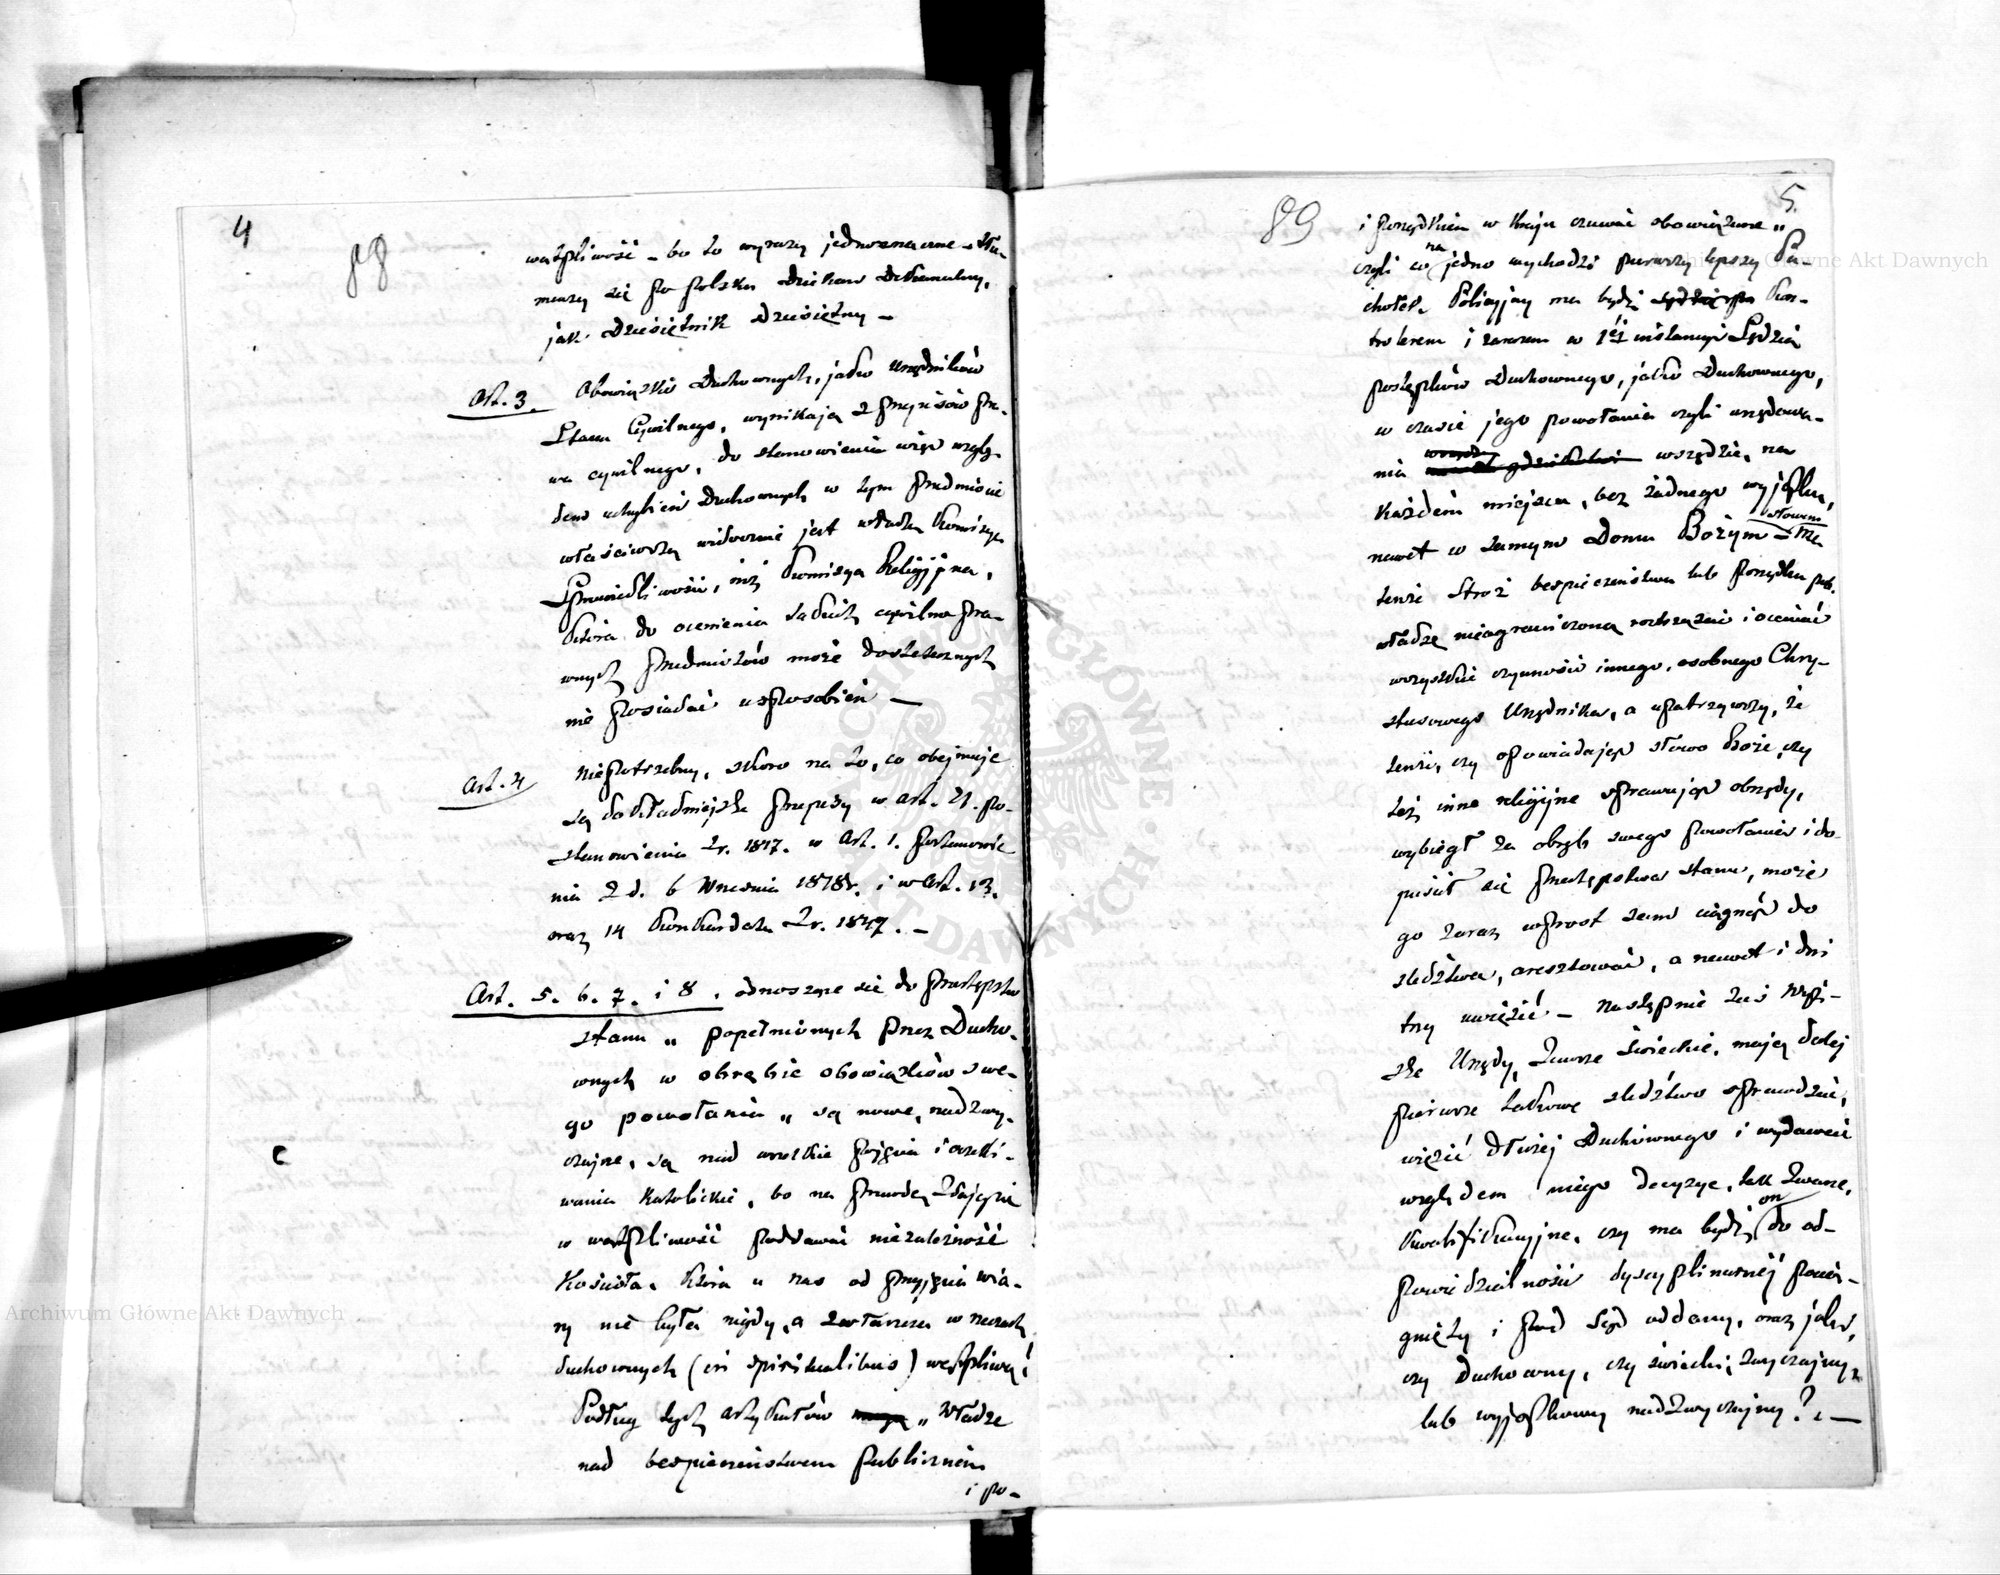 4
88
wątpliwość – bo to wyrazy jednoznaczne – tłu-
maczy się po polsku Dziekan Dekanalny,
jak Dziesiętnik Dziesiętny –
Art. 3. Obowiązki Duchownych, jako Urzędników
Stanu Cywilnego, wynikają z przepisów pra-
wa cywilnego, do stanowienia więc wzglę-
dem uchybień Duchownych w tym przedmiocie
właściwszą widocznie jest władza Komisyi
Sprawiedliwości, niż Komisya Religijna,
która do ocenienia takich cywilno pra-
wnych przedmiotów może dostatecznych
nie posiadać usposobień —
Art. 4 Niepotrzebny, skoro na to, co obejmuje
są dokładniejsze przepisy w art. 21. po-
stanowienia z r. 1817. w Art. 1. postanowie
nia z d. 6 Września 1818r. i w Art. 13.
oraz 14 Konkordatu z r. 1847. –
Art. 5. 6. 7. i 8. odnoszące się do przestępstw
stanu „ popełnionych przez Ducho-
wnych w obrębie obowiązków swe-
go powołania „ są nowe, nadzwy-
czajne, są nad wszelkie pojęcia i oczeki-
wania Katolickie, bo na prawdę zdają się
w wątpliwość poddawać niezależność
Kościoła, która u nas od przyjęcia wia-
ry nie była nigdy, a zwłaszcza w rzeczach
duchownych (in spiritualibus) wątpliwą!
Podług tych artykułów „ Władze
nad bezpieczeństwem publicznem
i po-
89
5.
i porządkiem w Kraju czuwać obowiązane „
czyli co na jedno wychodzi pierwszy lepszy Pa-
chołek Policyjny ma być Kon-
trolerem i zarazem w 1éj instancyi Sędzią
postępków Duchownego, jako Duchownego,
w czasie jego powołania czyli urzędowa-
nia wszędzie, na
każdem miejscu, bez żadnego wyjątku,
nawet w samym Domu Bożym – słowem ma
tenże Stróż bezpieczeństwa lub porządku pub.
władzę nieograniczoną roztrząsać i oceniać
wszystkie czynności innego, osobnego Chry-
stusowego Urzędnika, a upatrzywszy, że
tenże, czy opowiadając słowo Boże, czy
też inne religijne sprawując obrzędy,
wybiegł za obręb swego powołania i do
puścił się przestępstwa stanu, może
go zaraz wprost sam ciągnąć do
śledztwa, aresztować, a nawet i dni
trzy więzić – Następnie zaś Wyż-
sze Urzędy, zawsze świeckie, mają dalej
pierwsze takowe śledztwo sprawdzać,
więzić dłużej Duchownego i wydawać
względem niego decyzye, tak zwane,
Kwalifikacyjne, czy ma być on do od-
powiedzialności dyscyplinarnéj pocią-
gnięty i pod Sąd oddany, oraz jaki,
czy Duchowny, czy świecki, zwyczajny,
lub wyjątkowy nadzwyczajny? –
Archiwum Główne Akt Dawnych
Archiwum Główne Akt Dawnych
ARCHIWUM GŁÓWNE AKT DAWNYCH